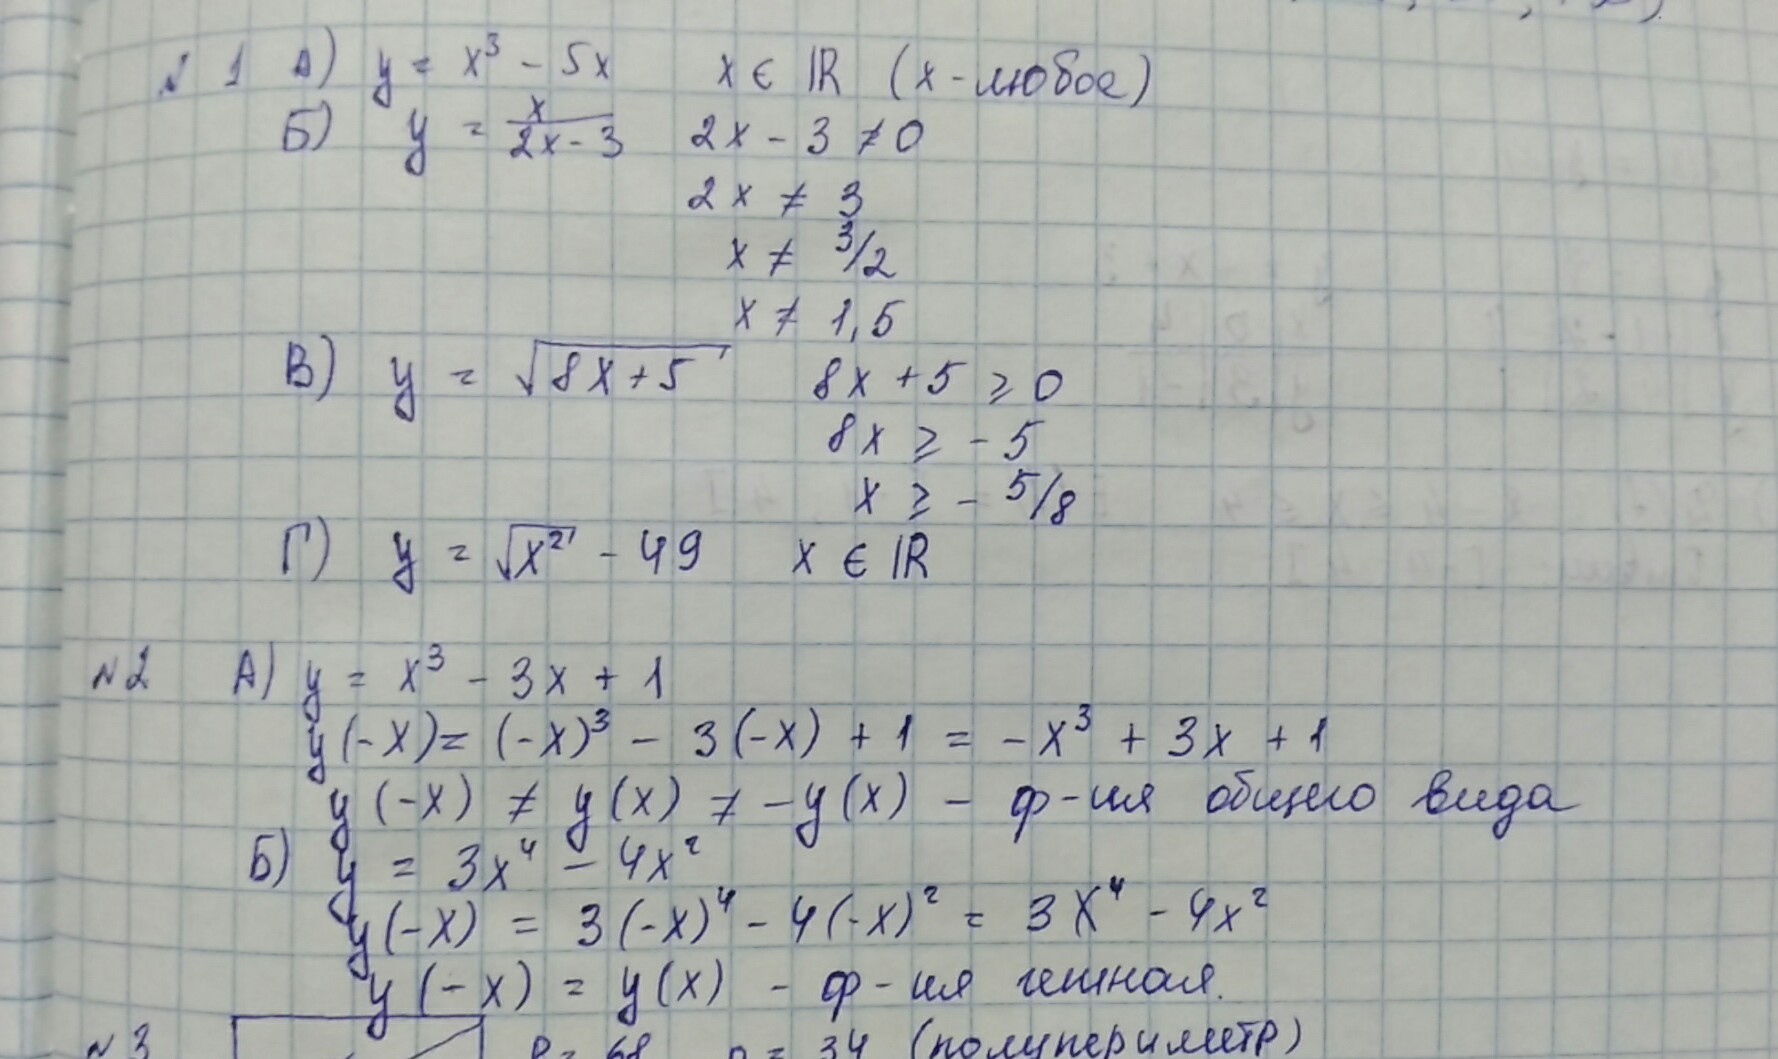 № 1 А) y = x³ - 5x x ∈ ℝ (x - любое)
Б) y = x/(2x - 3) 2x - 3 ≠ 0
2x ≠ 3
x ≠ 3/2
x ≠ 1,5
В) y = √(8x + 5) 8x + 5 ≥ 0
8x ≥ - 5
x ≥ - 5/8
Г) y = √(x²) - 49 x ∈ ℝ
№2 А) y = x³ - 3x + 1
y(-x) = (-x)³ - 3(-x) + 1 = -x³ + 3x + 1
y(-x) ≠ y(x) ≠ -y(x) - ф-ия общего вида
Б) y = 3x⁴ - 4x²
y(-x) = 3(-x)⁴ - 4(-x)² = 3x⁴ - 4x²
y(-x) = y(x) - ф-ия четная.
№3 P = 68 p = 34 (полупериметр)